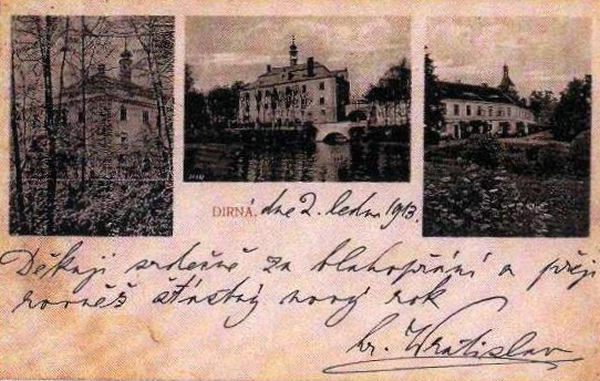 DIRNÁ, dne 2. ledna 1913.
Děkuji srdečně za blahopřání a přeji
rovněž šťastný nový rok
hr. Wratislav